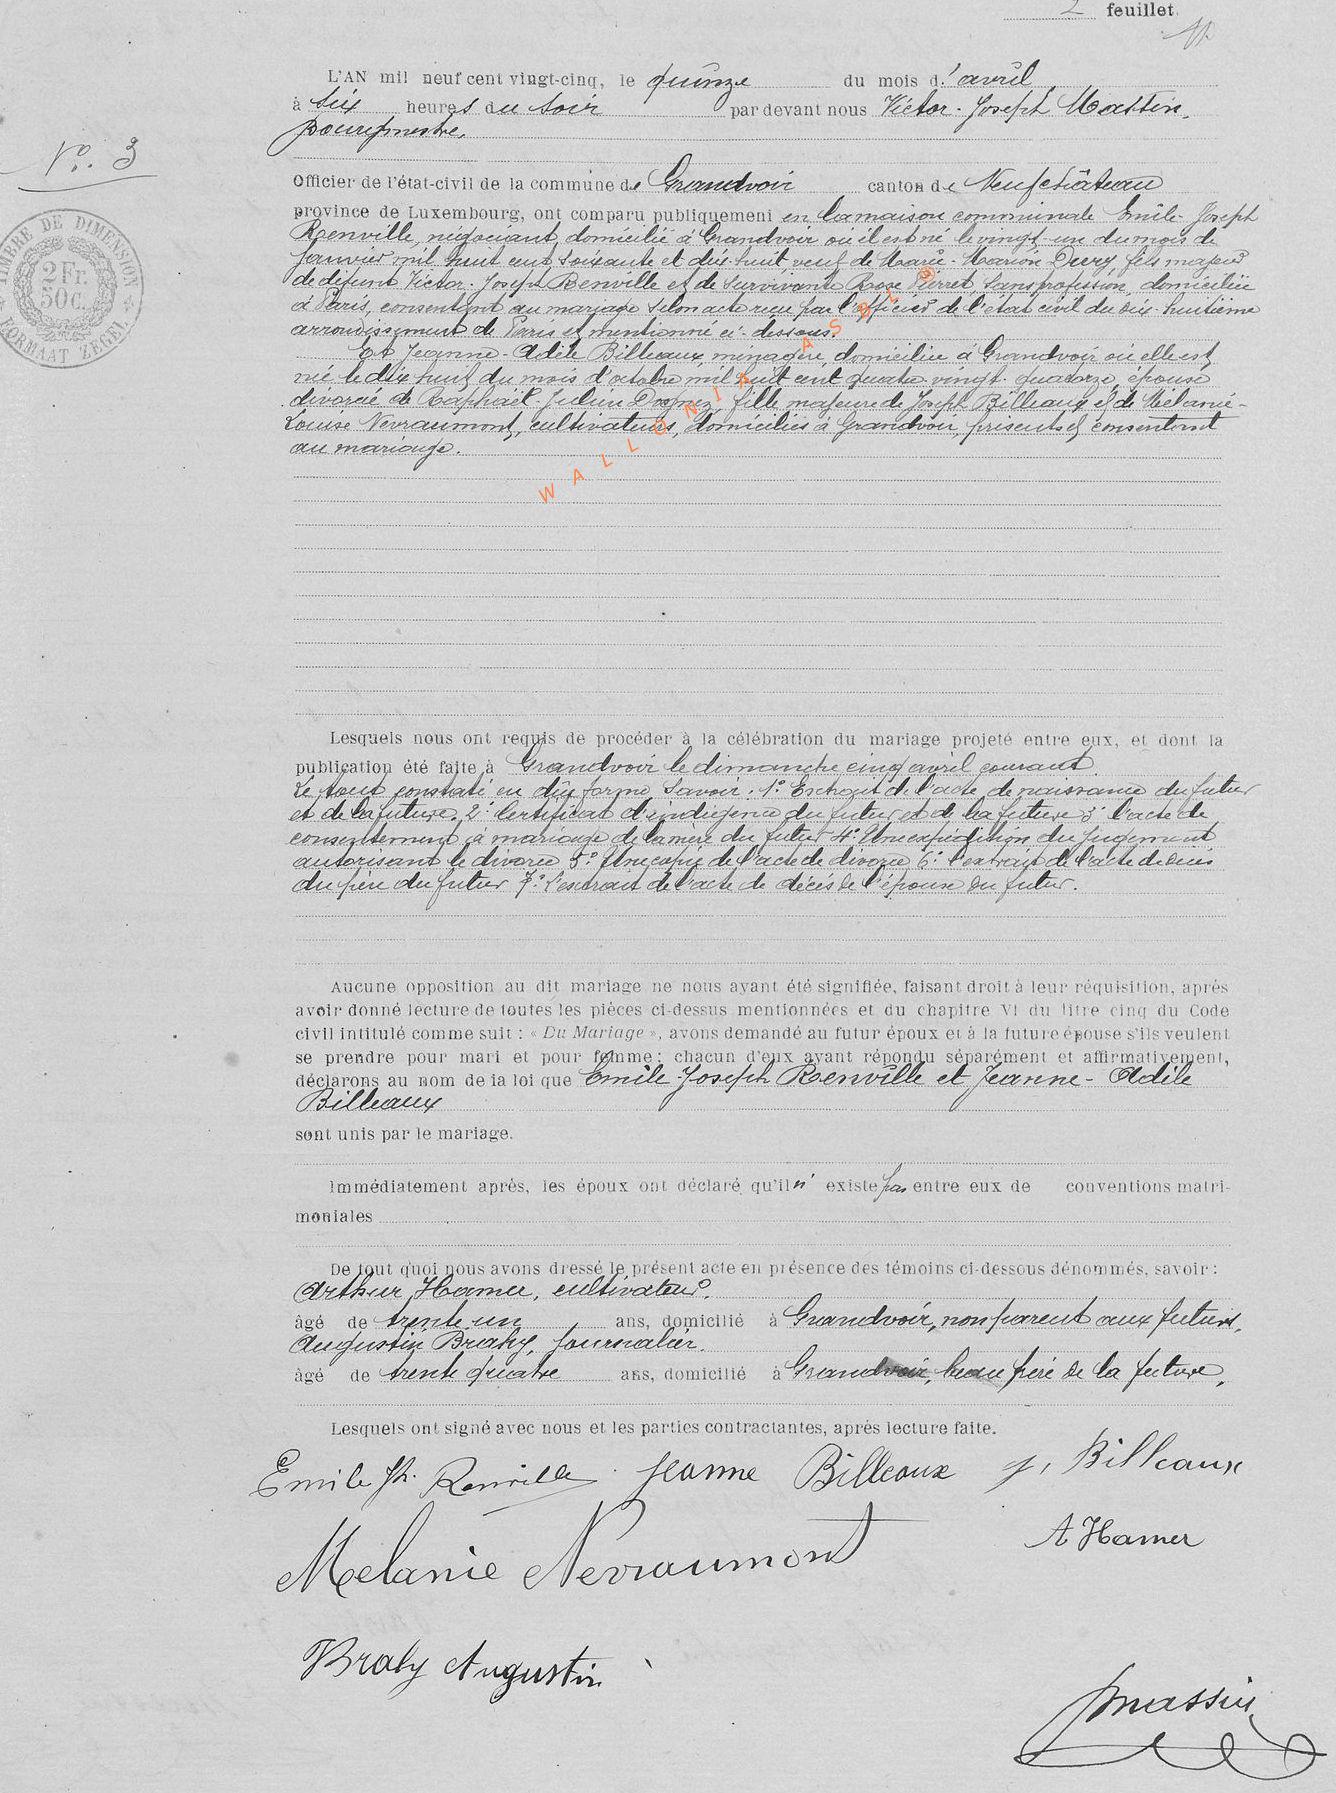 2 feuillet.
L'AN mil neuf cent vingt-cinq, le quinze du mois d'avril
à six heures du soir par devant nous Victor-Joseph Massin,
bourgmestre,
No. 3
Officier de l'état-civil de la commune de Grandvoir canton de Neufchâteau
province de Luxembourg, ont comparu publiquement en la maison communale Emile-Joseph
Renville, négociant, domicilié à Grandvoir où il est né le vingt-un du mois de
Janvier mil huit cent soixante et dix-huit veuf de Marie-Marion fils majeur
de défunt Victor-Joseph Renville et de survivante Rose Pierret, sans profession, domiciliée
à Paris, consentant au mariage selon acte reçu par l'officier de l'état civil du dix-huitième
arrondissement de Paris et mentionné ci-dessous.
Et Jeanne-Adèle Billeaux, ménagère, domiciliée à Grandvoir où elle est
née le dix huit du mois d'octobre mil huit cent quatre vingt-quatorze, épouse
divorcée de Raphaël-Julien fille majeure de Joseph Billeaux et de Mélanie-
Louise Nevraumont, cultivateurs, domiciliés à Grandvoir, présents et consentant
au mariage.
WALLONIA ASBL ©
TIMBRE DE DIMENSION
2 Fr. 50 c.
FORMAAT ZEGEL
Lesquels nous ont requis de procéder à la célébration du mariage projeté entre eux, et dont la
publication été faite à Grandvoir le dimanche cinq avril courant.
Le tout constaté en due forme savoir: 1° Extrait de l'acte de naissance du futur
et de la future. 2° Certificat d'indigence du futur et de la future 3° l'acte de
consentement à mariage de la mère du futur 4° Une expédition du jugement
autorisant le divorce 5° Une copie de l'acte de divorce 6° l'extrait de l'acte de décès
du père du futur 7° l'extrait de l'acte de décès de l'épouse du futur.
Aucune opposition au dit mariage ne nous ayant été signifiée, faisant droit à leur réquisition, après
avoir donné lecture de toutes les pièces ci-dessus mentionnées et du chapitre VI du litre cinq du Code
civil intitulé comme suit : « Du Mariage », avons demandé au futur époux et à la future épouse s'ils veulent
se prendre pour mari et pour femme ; chacun d'eux ayant répondu séparément et affirmativement,
déclarons au nom de la loi que Emile-Joseph Renville et Jeanne-Adèle
Billeaux
sont unis par le mariage.
Immédiatement après, les époux ont déclaré qu'il n'existe pas entre eux de conventions matri-
moniales
De tout quoi nous avons dressé le présent acte en présence des témoins ci-dessous dénommés, savoir :
Arthur Hamer, cultivateur,
âgé de trente un ans, domicilié à Grandvoir, non parent aux futurs,
Augustin Brahy, journalier,
âgé de trente quatre ans, domicilié à Grandvoir, beau frère de la future,
Lesquels ont signé avec nous et les parties contractantes, après lecture faite.
Emile Jh. Renville Jeanne Billeaux J. Billeaux
Melanie Nevraumont A Hamer
Brahy Augustin
Massin